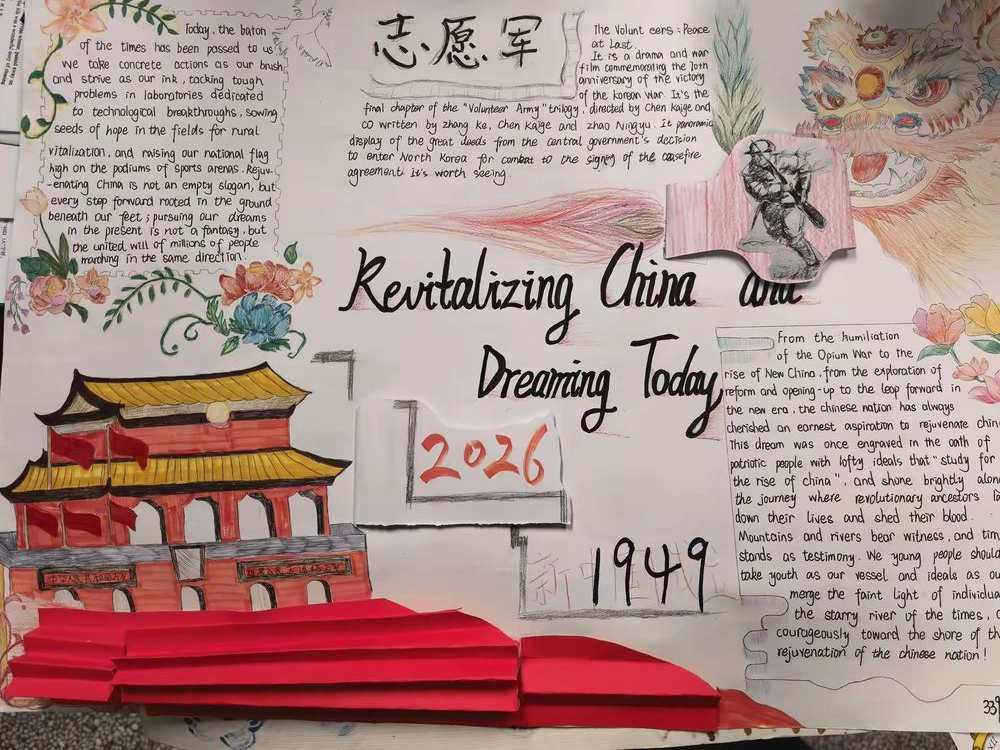 Today, the baton
of the times has been passed to us
we take concrete actions as our brush
and strive as our ink, tacking tough
problems in laboratories dedicated
to technological breakthroughs, sowing
seeds of hope in the fields for rural
vitalization, and raising our national flag
high on the podiums of sports arenas. Rejuv-
-enating China is not an empty slogan, but
every step forward rooted in the ground
beneath our feet; pursuing our dreams
in the present is not a fantasy, but
the united will of millions of people
marching in the same direction.
志愿军
The Volunt eers: Peace
at Last.
It is a drama and war
film commemorating the 70th
anniversary of the victory
of the korean War. It's the
final chapter of the "Volunteer Army" trilogy, directed by Chen Kaige and
co written by zhang ke, Chen Kaige and zhao Ningyu. It panoramic
display of the great deeds from the central government's decision
to enter North Korea for combat to the signing of the ceasefire
agreement. It's worth seeing.
Revitalizing China and
Dreaming Today
2026
1949
From the humiliation
of the Opium War to the
rise of New China, from the exploration of
reform and opening-up to the leap forward in
the new era, the chinese nation has always
cherished an earnest aspiration to rejuvenate chin
This dream was once engraved in the oath of
patriotic people with lofty ideals that "study for
the rise of china", and shone brightly along
the journey where revolutionary ancestors la
down their lives and shed their blood.
Mountains and rivers bear witness, and tim
stands as testimony. We young people should
take youth as our vessel and ideals as ou
merge the faint light of individua
the starry river of the times,
courageously toward the shore of th
rejuvenation of the chinese nation!
339